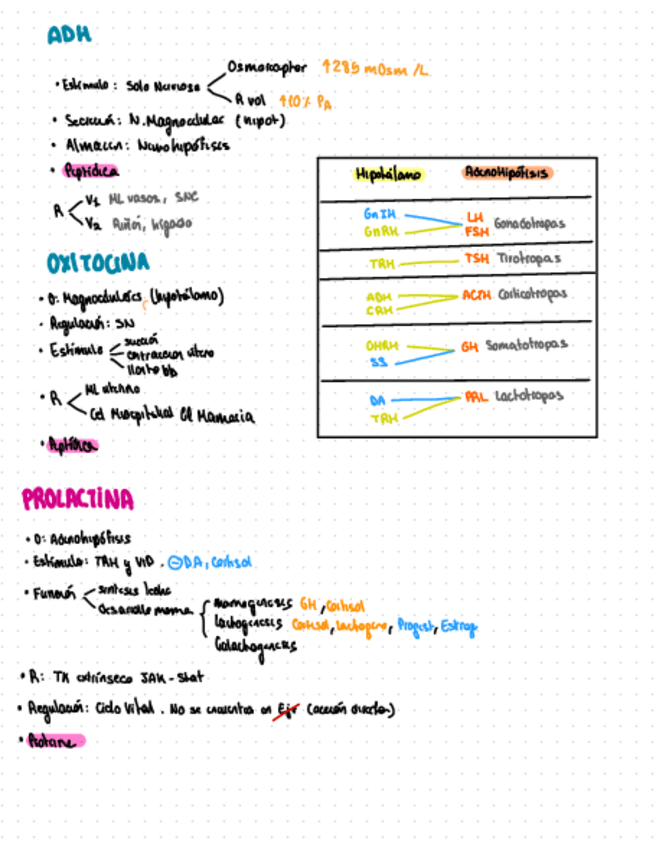 ADH
• Estímulo: Solo Nerviosa
Osmoreceptor ↑285 mOsm /L
R vol ↑10% PA
• Secreción: N. Magnocelular (hipot)
• Almacen: Neurohipófisis
• Peptídica
R
V1 ML vasos, SNC
V2 Riñón, hígado
OXITOCINA
• O: Magnocelulares (hipotálamo)
• Regulación: SN
• Estímulo
succión
contraccion utero
llanto bb
• R
ML uterino
Cel Mioepitelial Gl Mamaria
• Peptídica
Hipotálamo Adenohipófisis
GnIH
GnRH
LH
FSH
Gonadotropas
TRH TSH Tirotropas
ADH
CRH
ACTH Corticotropas
GHRH
SS
GH Somatotropas
DA
TRH
PRL Lactotropas
PROLACTINA
• O: Adenohipófisis
• Estímulo: TRH y VIP. ⊖DA, Cortisol
• Función
síntesis leche
desarrollo mama
mamogenesis GH, Cortisol
lactogenesis Cortisol, lactogeno, Progest, Estrog
Galactogenesis
• R: TK extrínseco JAK-Stat
• Regulación: Ciclo Vital. No se encuentra en Eje (acción directa)
• Proteina